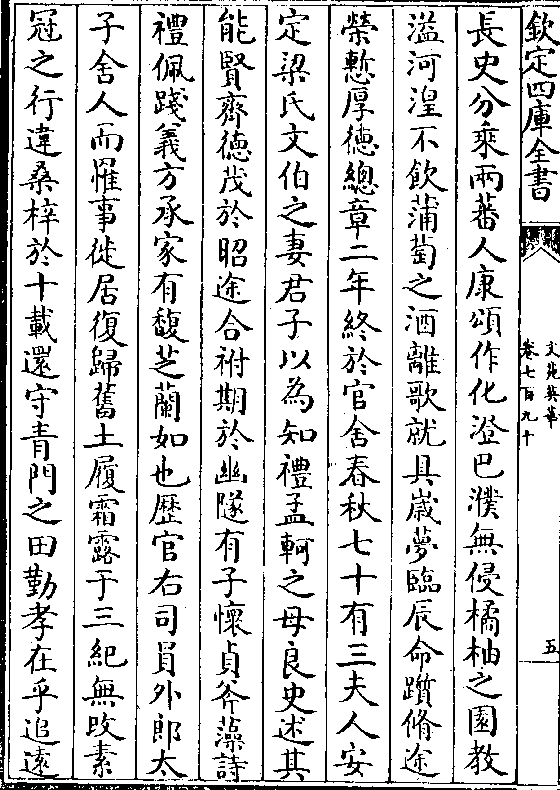 欽定四庫全書
文苑英華
卷七百九十
五
長史分乘兩蕃人康頌作化澄巴濮無侵橘柚之園教
溢河湟不飲蒲萄之酒離歌就具嵗夢臨辰命躓脩途
榮慙厚徳總章二年終於官舍春秋七十有三夫人安
定梁氏文伯之妻君子以為知禮孟軻之母良史述其
能賢齊徳茂於昭途合祔期於幽隧有子懷貞斧藻詩
禮佩踐義方承家有馥芝蘭如也歴官右司員外郎太
子舍人而罹事徙居復歸舊土履霜露于三紀無改素
冠之行違桑梓於十載還守青門之田勤孝在乎追逺